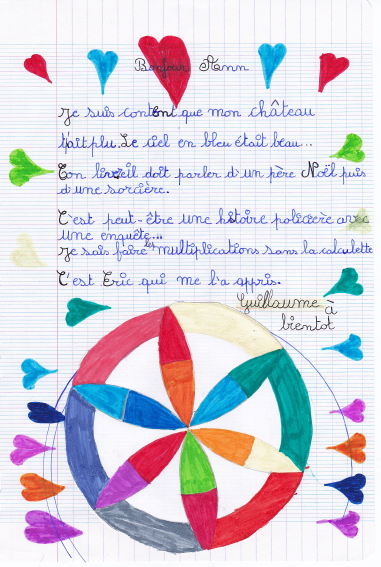 Bonjour Ann
Je suis content que mon château
t'ait plu. Le ciel en bleu était beau..
Ton livreil doit parler d'un père Noël puis
d'une sorcière.
C'est peut-être une histoire policière avec
une enquête...
Je sais faire les multiplications sans la calculette
C'est Eric qui me l'a appris.
Guillaume à
bientot